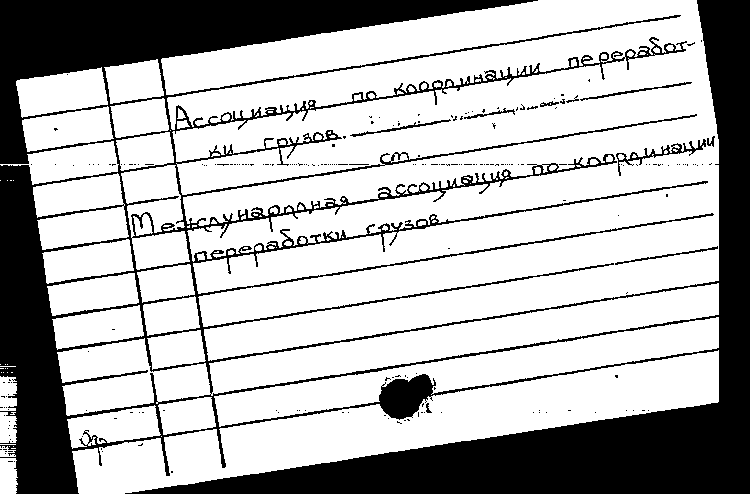 Ассоциация по координации переработ-
ки грузов.
см.
Международная ассоциация по координации
переработки грузов.